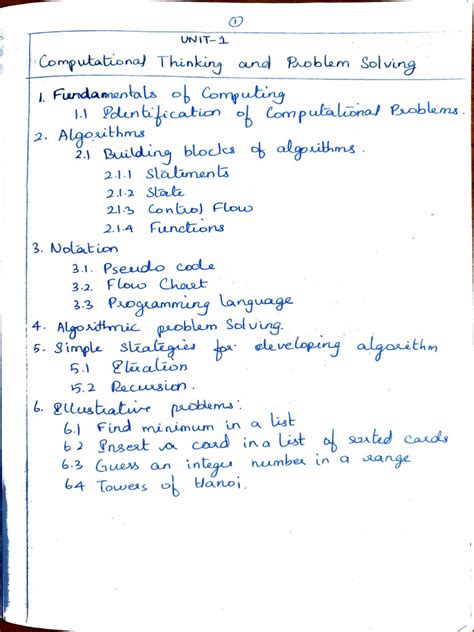 1
UNIT-1
Computational Thinking and Problem Solving
1. Fundamentals of Computing
1.1 Identification of Computational Problems.
2. Algorithms
2.1 Building blocks of algorithms.
2.1.1 Statements
2.1.2 State
2.1.3 Control Flow
2.1.4 Functions
3. Notation
3.1. Pseudo code
3.2. Flow Chart
3.3 Programming language
4. Algorithmic problem Solving.
5. Simple strategies for developing algorithm
5.1 Iteration
5.2 Recursion.
6. Illustrative problems:
6.1 Find minimum in a list
6.2 Insert a card in a list of sorted cards
6.3 Guess an integer number in a range
6.4 Towers of Hanoi.